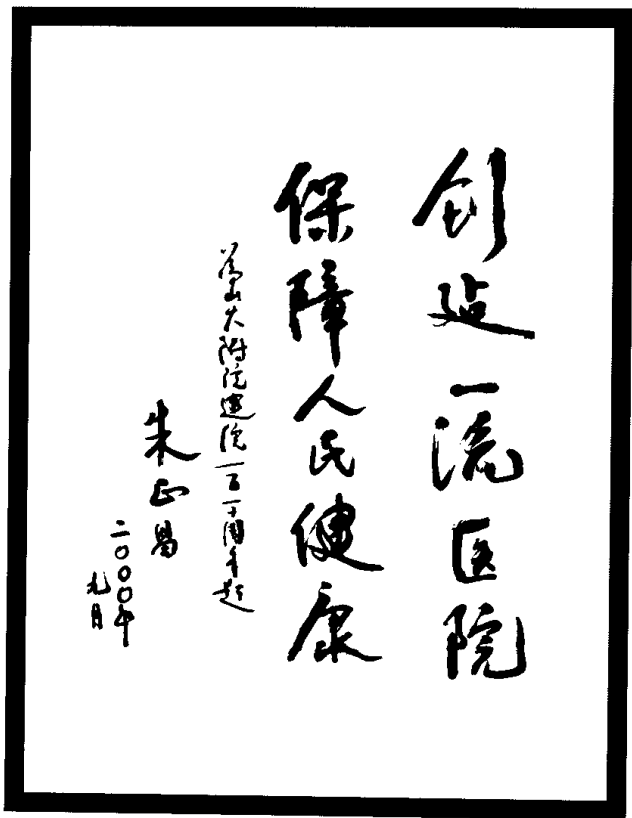 创造一流医院
保障人民健康
为山大附院建院一百一十周年题
朱正昌
二〇〇〇年
元月